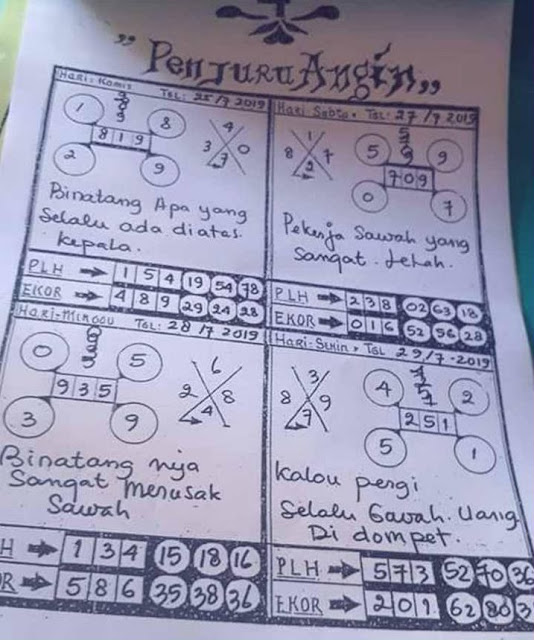 " Penjuru Angin "
Hari: Kamis TGL: 25/7 2019
1 8
819
2 9
4
3 0
7
Binatang Apa yang
Selalu ada diatas
kepala.
PLH 1 5 4 19 54 78
EKOR 4 8 9 29 24 28
Hari Sabto, TGL: 27/7 2019
1
8 7
2
5 9
709
0 7
Pekerja Sawah yang
Sangat. Lelah.
PLH 2 3 8 02 63 18
EKOR 0 1 6 52 56 28
Hari=Minggu TGL: 28/7 2019
0 5
935
3 9
6
2 8
4
Binatang nya
Sangat Merusak
Sawah
H 1 3 4 15 18 16
OR 5 8 6 35 38 36
Hari=Senin, TGL 29/7-2019
3
8 9
7
4 2
251
5 1
kalou pergi
Selalu Bawah. Uang
Di dompet.
PLH 5 7 3 52 70 36
EKOR 2 0 1 62 80 3